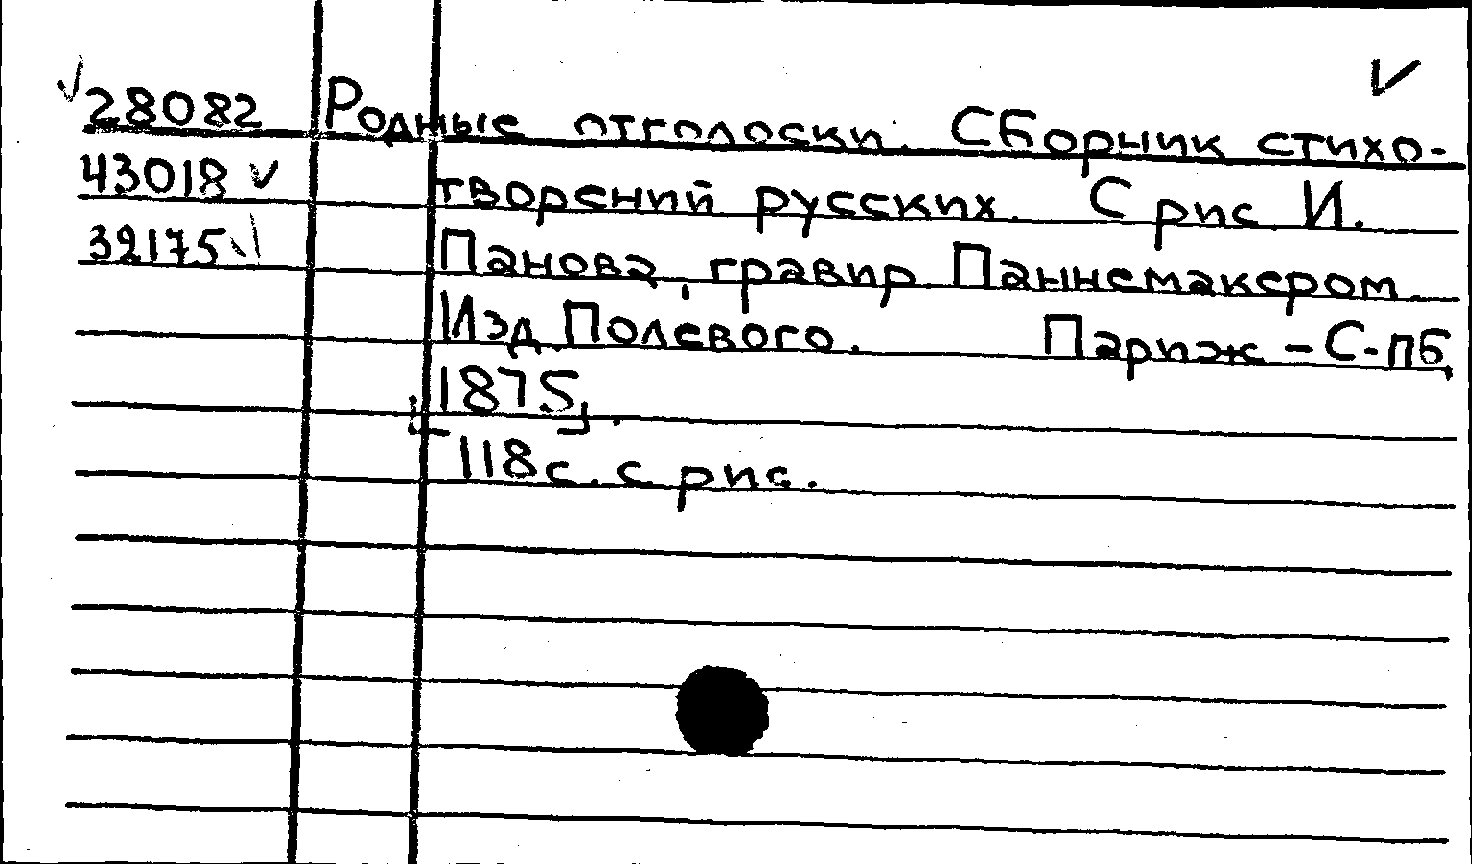 ✓28082 Родные отголоски. Сборник стихо-
43018 ✓ творений русских. С рис И.
32175 ✓ Панова, гравир. Паннемакером.
Изд. Полевого. Париж - С-пб,
[1875].
118с. с рис.